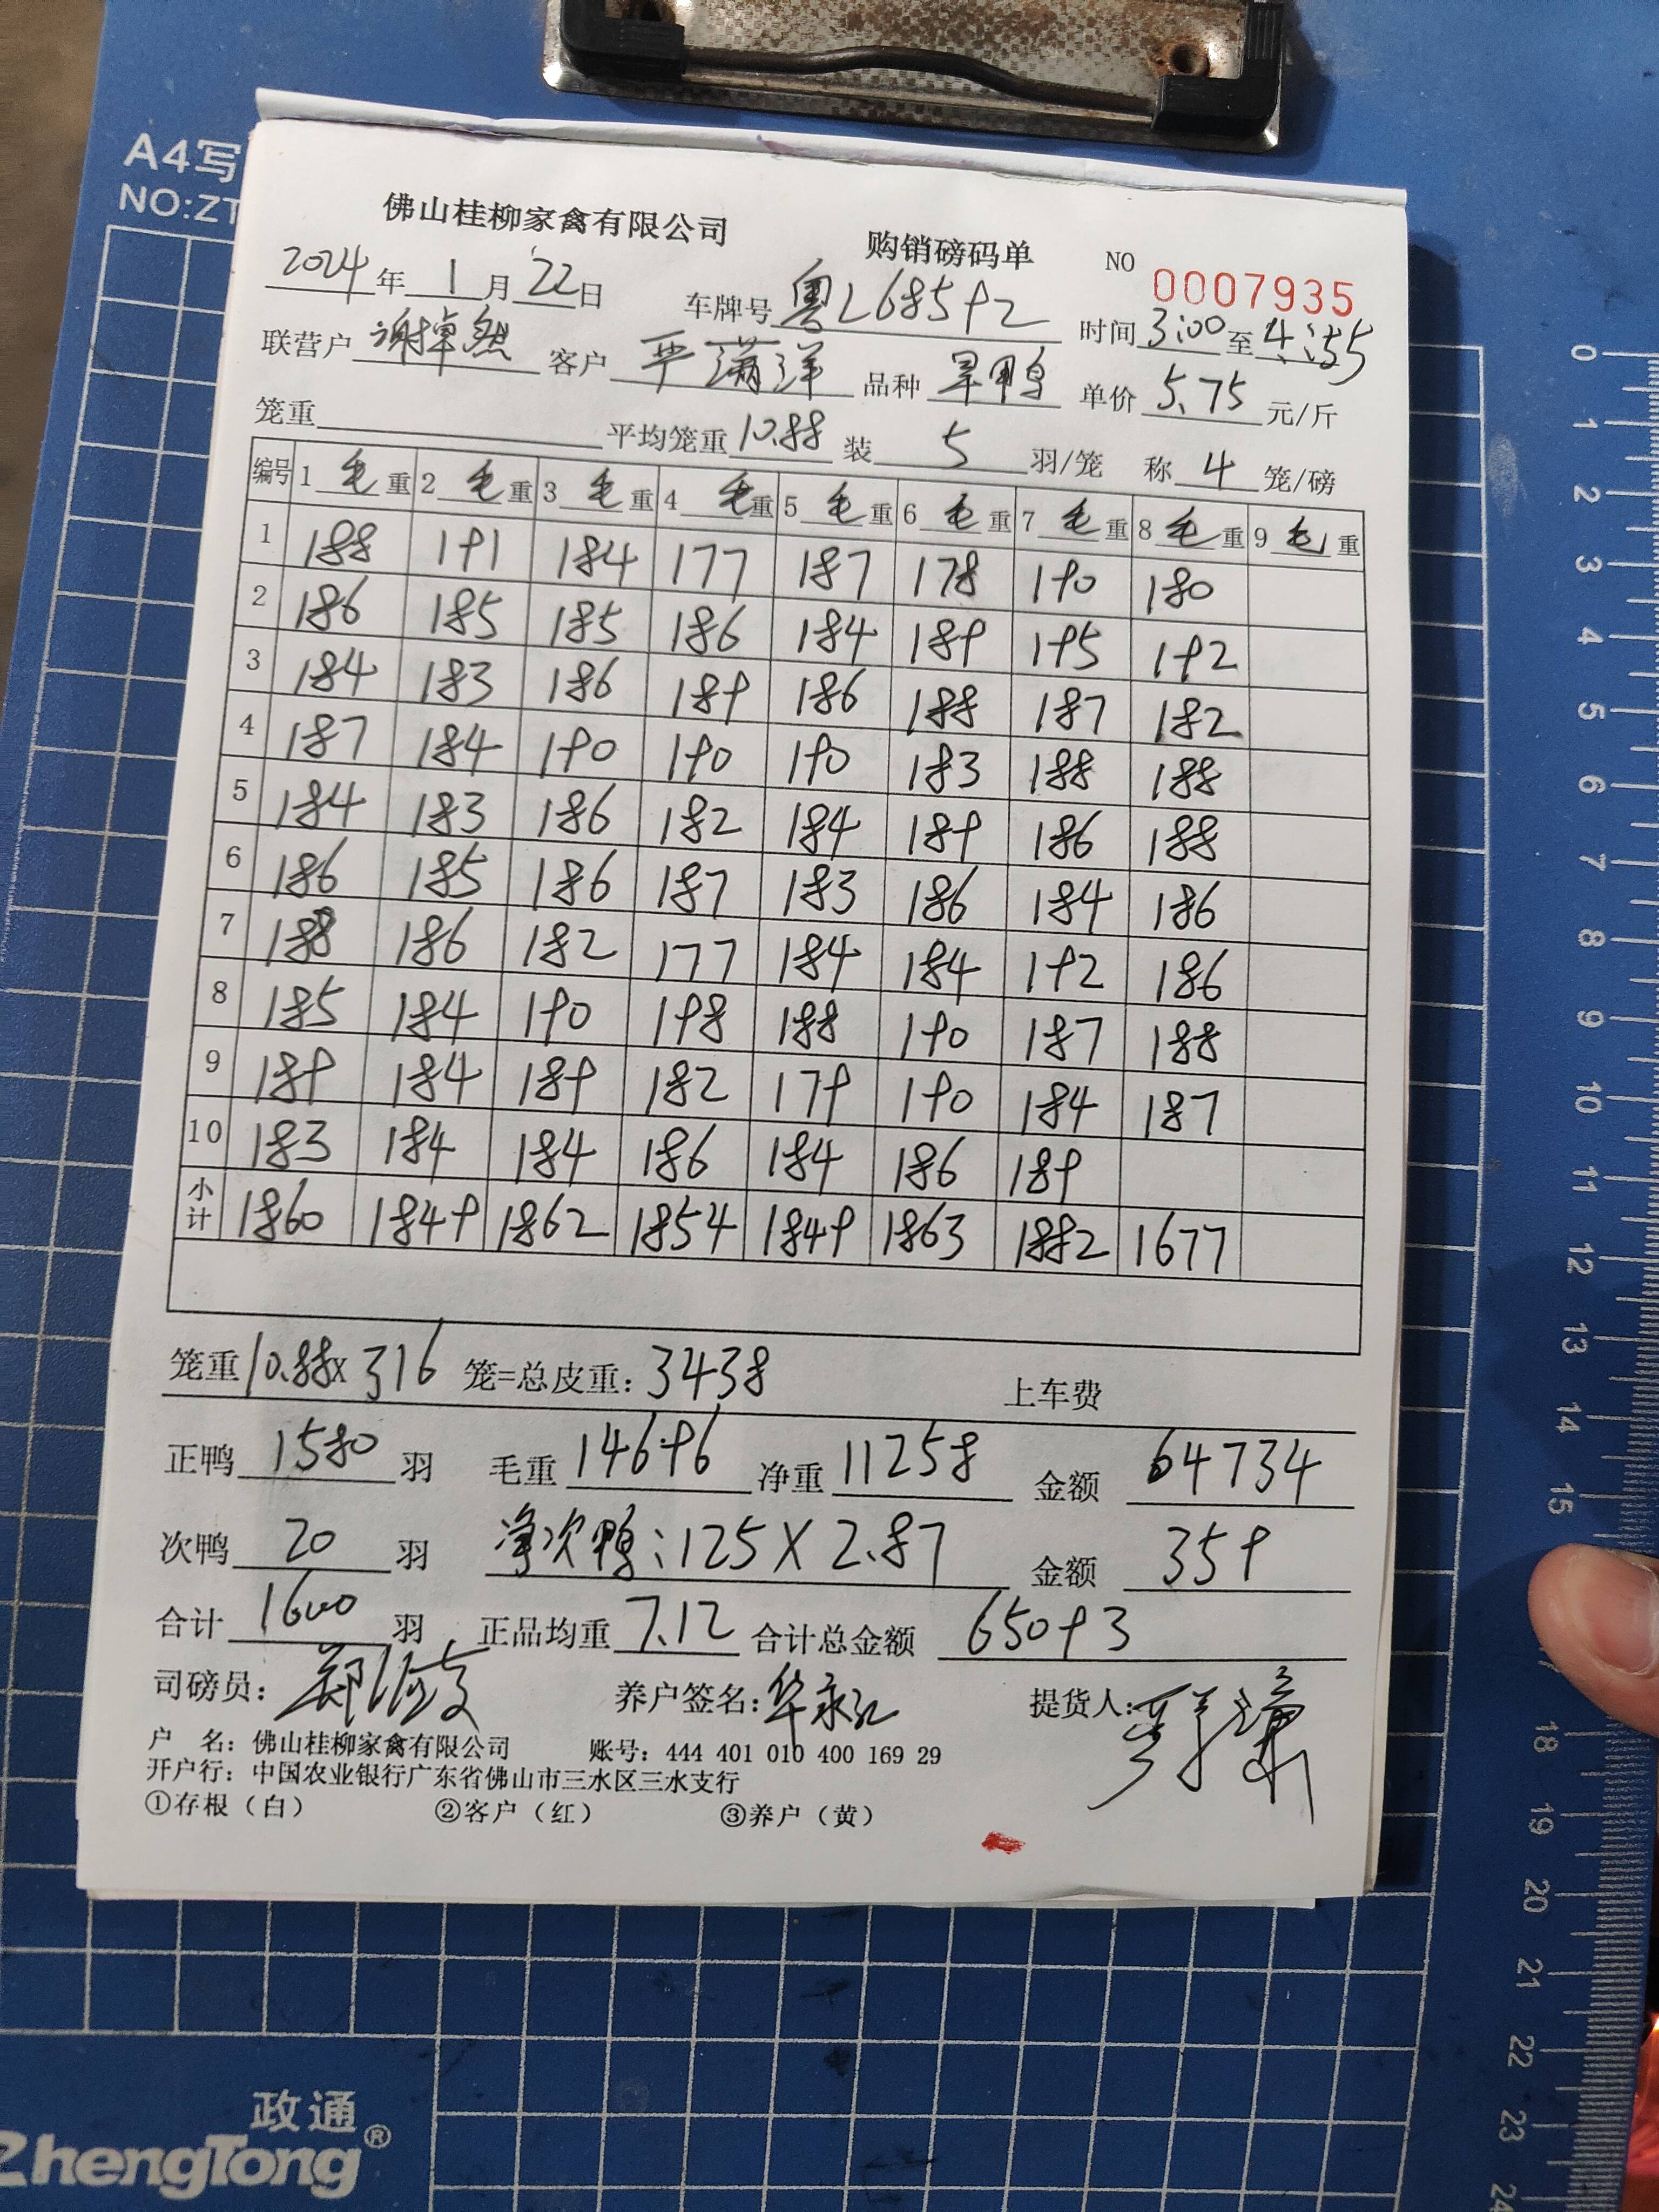 A4写
NO:ZT
佛山桂柳家禽有限公司 购销磅码单 NO 0007935
2024年1月22日 车牌号 粤L68592 时间 3:00 至 4:55
联营户 谢焯然 客户 严潇洋 品种 旱鸭 单价 5.75 元/斤
笼重 平均笼重 10.88 装 5 羽/笼 称 4 笼/磅
编号 1 毛重 2 毛重 3 毛重 4 毛重 5 毛重 6 毛重 7 毛重 8 毛重 9 毛重
1 188 191 184 177 187 178 190 180
2 186 185 185 186 184 189 195 192
3 184 183 186 189 186 188 187 182
4 187 184 190 190 190 183 188 188
5 184 183 186 182 184 189 186 188
6 186 185 186 187 183 186 184 186
7 188 186 182 177 184 184 192 186
8 185 184 190 198 188 190 187 188
9 189 184 189 182 179 190 184 187
10 183 184 184 186 184 186 189
小计 1860 1849 1862 1854 1849 1863 1882 1677
笼重 10.88x 316 笼=总皮重: 3438 上车费
正鸭 1580 羽 毛重 14696 净重 11258 金额 64734
次鸭 20 羽 净次鸭:125 X 2.87 金额 359
合计 1600 羽 正品均重 7.12 合计总金额 65093
司磅员: 养户签名: 提货人:
户 名: 佛山桂柳家禽有限公司 账号: 444 401 010 400 169 29
开户行: 中国农业银行广东省佛山市三水区三水支行
①存根(白) ②客户(红) ③养户(黄)
政通
ZhengTong®
0
1
2
3
4
5
6
7
8
9
10
11
12
13
14
15
17
18
19
20
21
22
23
24